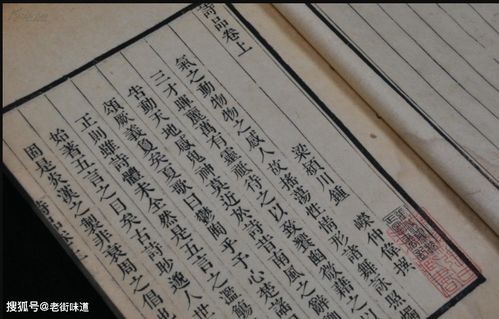 詩品卷上
梁潁川鍾 嶸仲偉撰
氣之動物物之感人故搖蕩性情形諸舞詠照燭
三才暉麗萬有靈祇待之以致饗幽微藉之以
告動天地感鬼神莫近於詩昔南風之辭
頌厥義夐矣夏歌曰鬱陶乎予心楚謠
正則雖詩體未全然是五言之濫觴
始著五言之目矣古詩眇邈人世
固是炎漢之製非衰周之倡也
搜狐号@老街味道